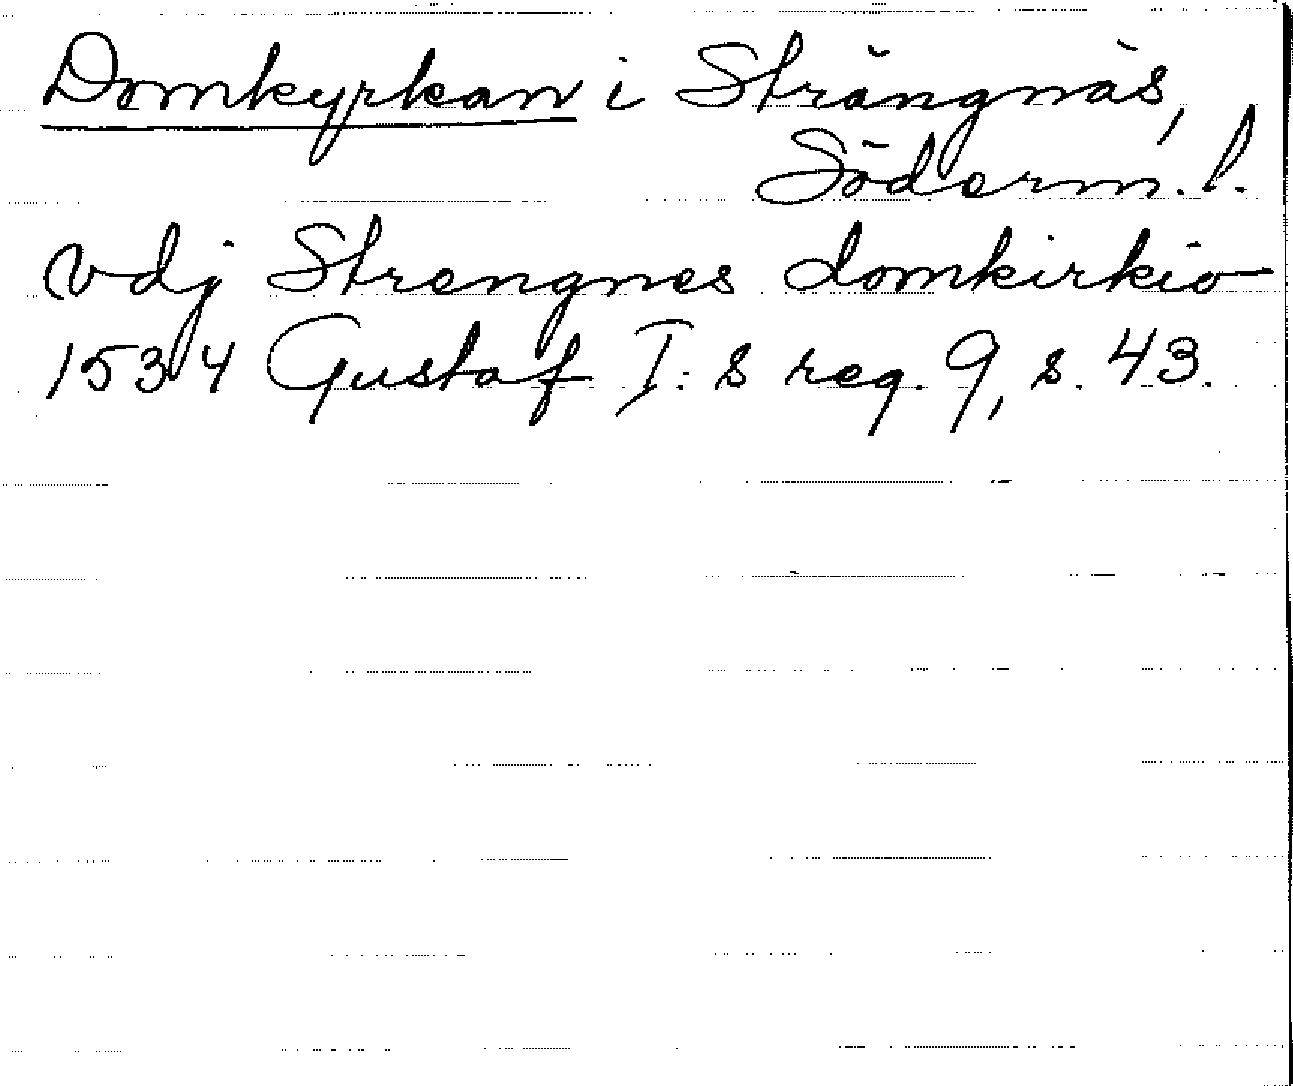 Domkyrkan i Strängnäs,
Söderm. l.
vdj Strengnes domkirkio
1534 Gustaf I: s reg. 9, s. 43.